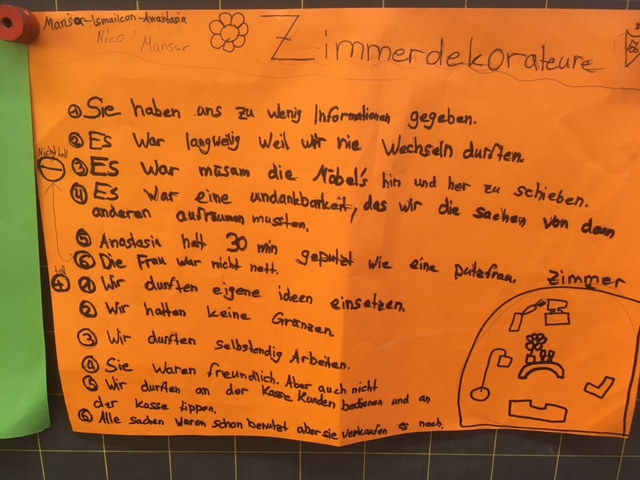 Mansor-Ismailcan-Anastasia
Nico Mansur
Zimmerdekorateure
① Sie haben uns zu wenig Informationen gegeben.
② Es War langweilig weil wir nie Wechseln durften.
Nicht toll
③ Es War müsam die Möbel's hin und her zu schieben.
④ Es War eine undankbarkeit, des wir die sachen von dann
anderen aufräumen mussten.
⑤ Anastasia hatt 30 min geputzt wie eine putzfrau.
⑥ Die Frau war nicht nett.
Zimmer
toll
① Wir durften eigene ideen einsetzen.
② Wir hatten keine Gränzen.
③ Wir durften selbstendig Arbeiten.
④ Sie waren freundlich. Aber auch nicht
⑤ Wir durften an der Kasse Kunden bedienen und an
der Kasse tippen.
⑥ Alle sachen waren schon benutzt aber sie verkaufen es noch.